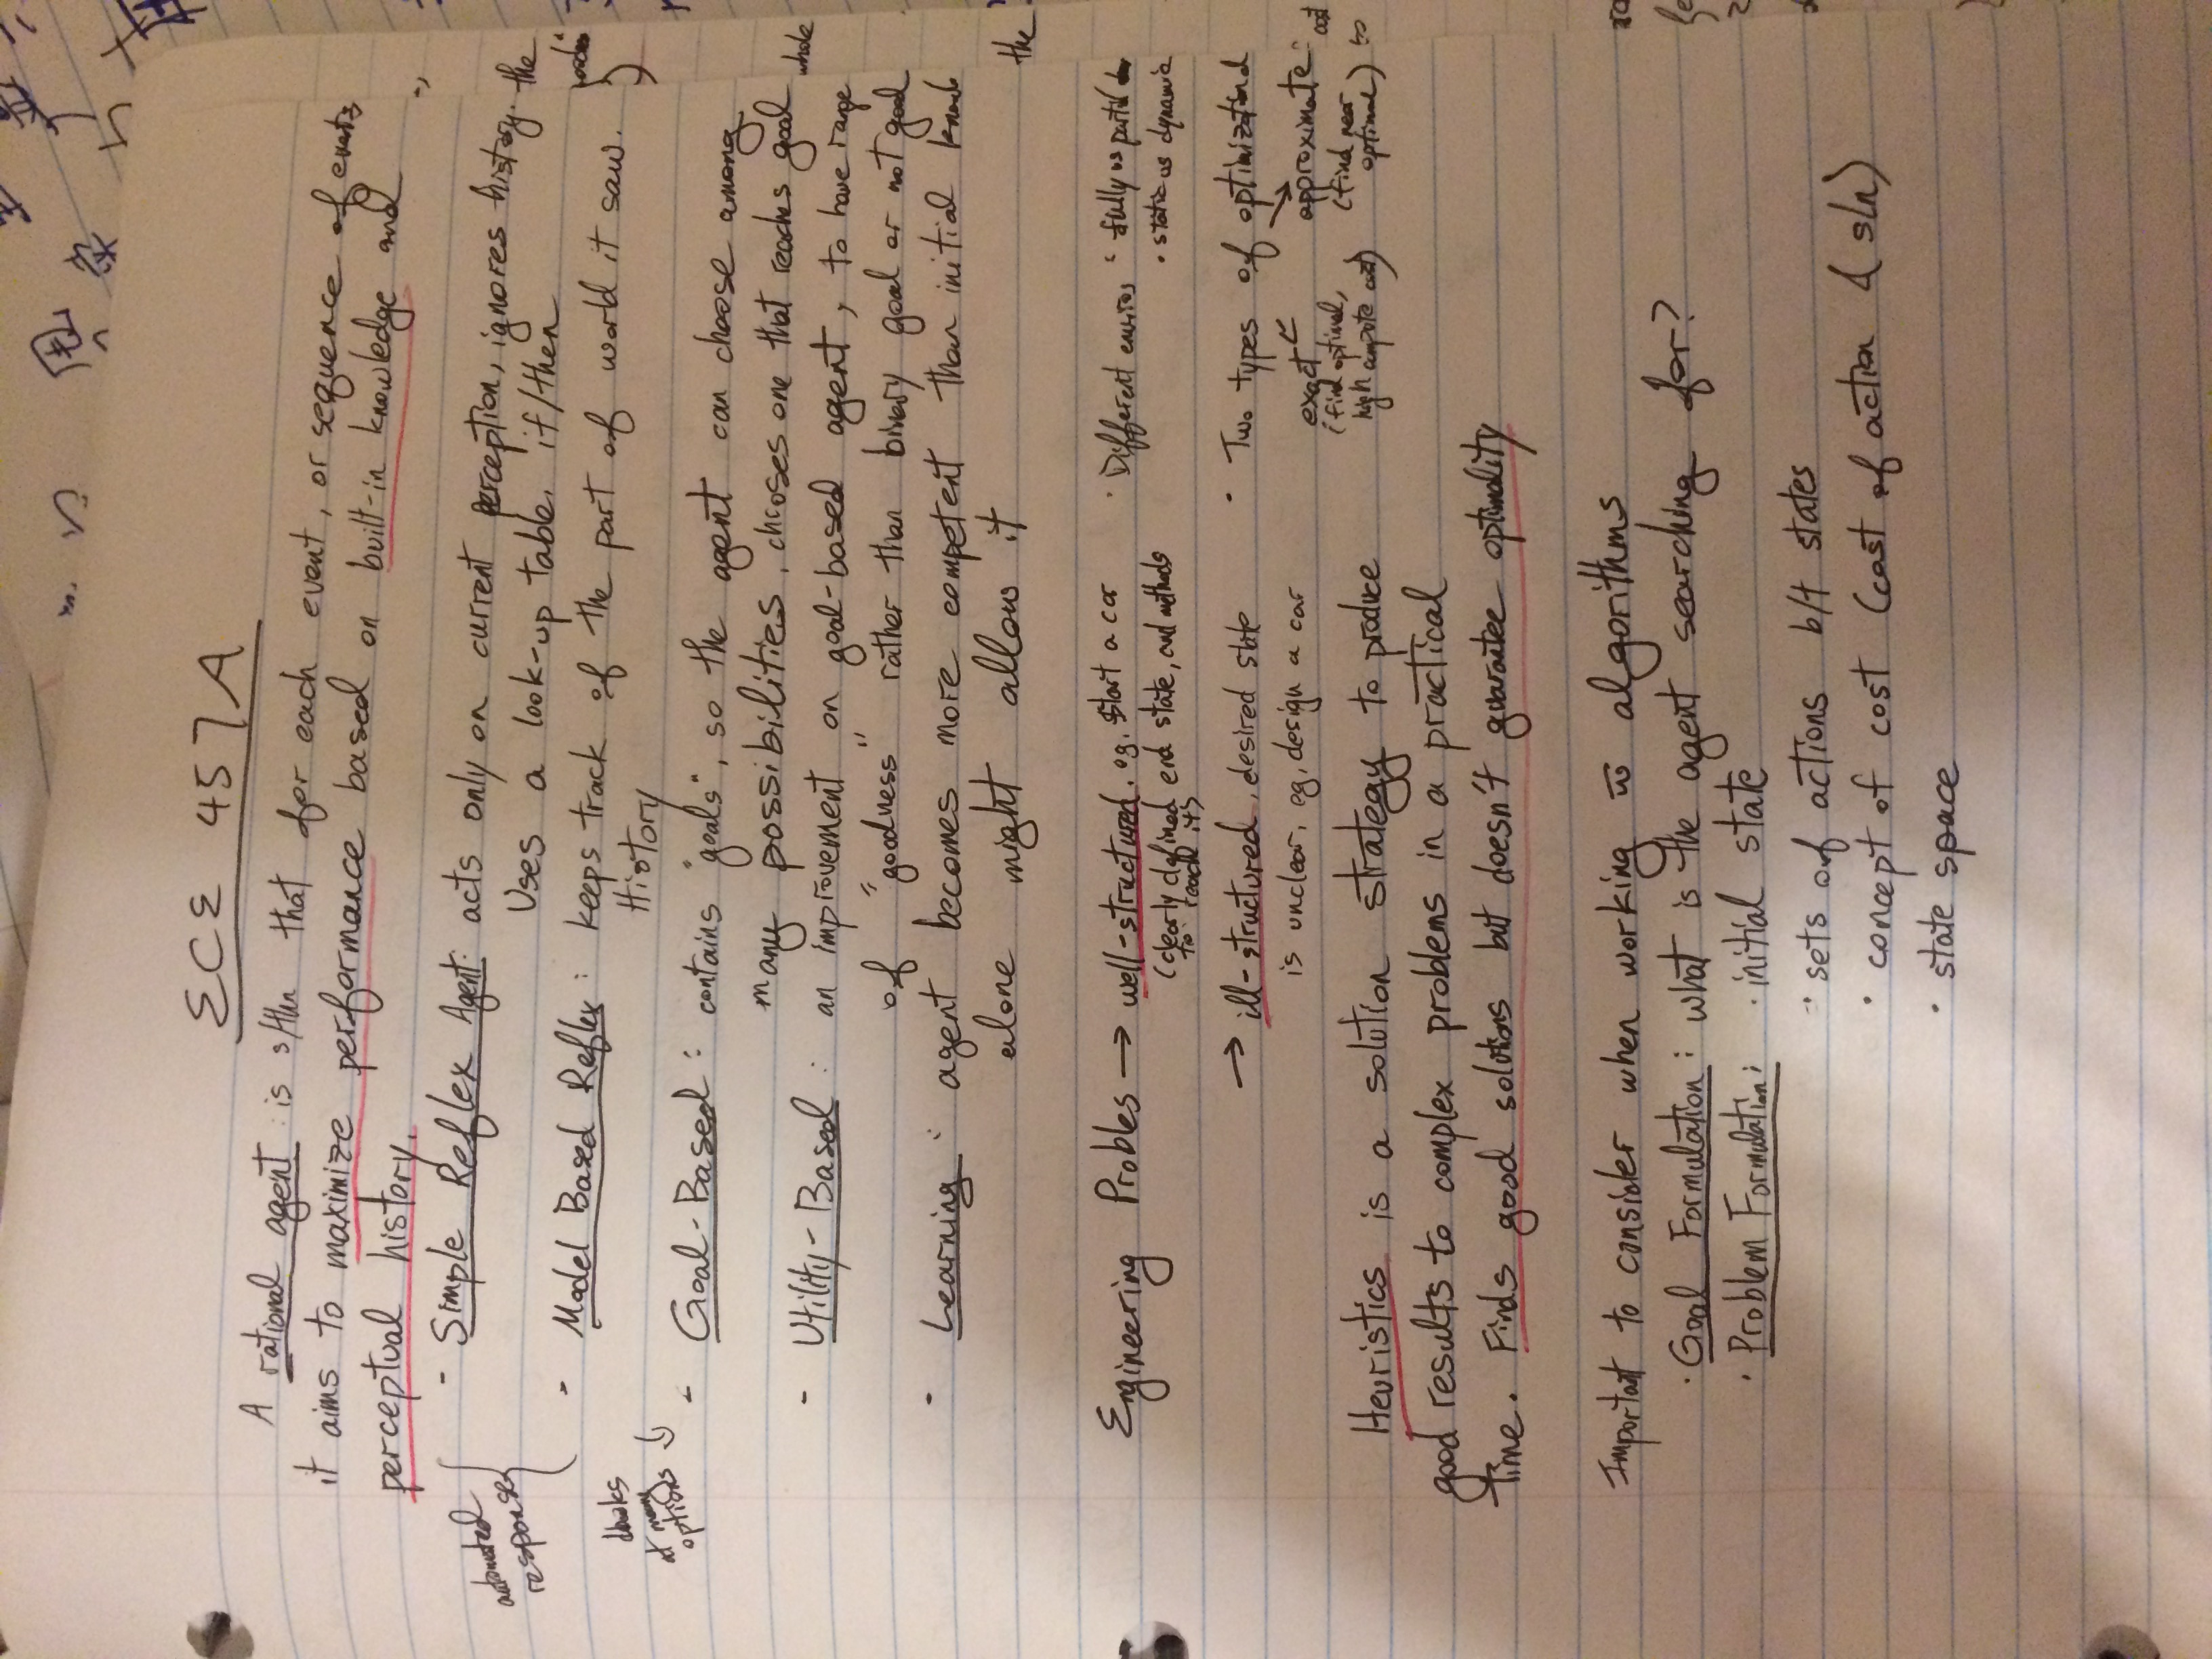 ECE 457A
A rational agent : is s/thn that for each event, or sequence of events,
it aims to maximize performance based on built-in knowledge and
perceptual history.
automated
response
- Simple Reflex Agent: acts only on current perception, ignores history.
Uses a look-up table. if/then
- Model Based Reflex : keeps track of the part of world it saw.
History
looks
at many
options ↓
- Goal-Based : contains "goals", so the agent can choose among
many possibilities, chooses one that reaches goal
- Utility-Based : an improvement on goal-based agent, to have range
of "goodness" rather than binary goal or not goal
- Learning : agent becomes more competent than initial
alone might allow it
Engineering Probles → well-structured. eg. start a car
(clearly defined end state, and methods
to reach it)
→ ill-structured, desired state
is unclear, eg, design a car
· Different enviros : fully vs partial
· static vs dynamic
· Two types of
exact
(find optimal,
high compute cost)
approximate
(find near
optimal)
Heuristics is a solution strategy to produce
good results to complex problems in a practical
time. Finds good solutions but doesn't guarantee optimality
Important to consider when working w algorithms
· Goal Formulation : what is the agent searching for?
· Problem Formulation: · initial state
· sets of actions b/t states
· concept of cost (cost of action & sln)
· state space
the
whole
the
cost